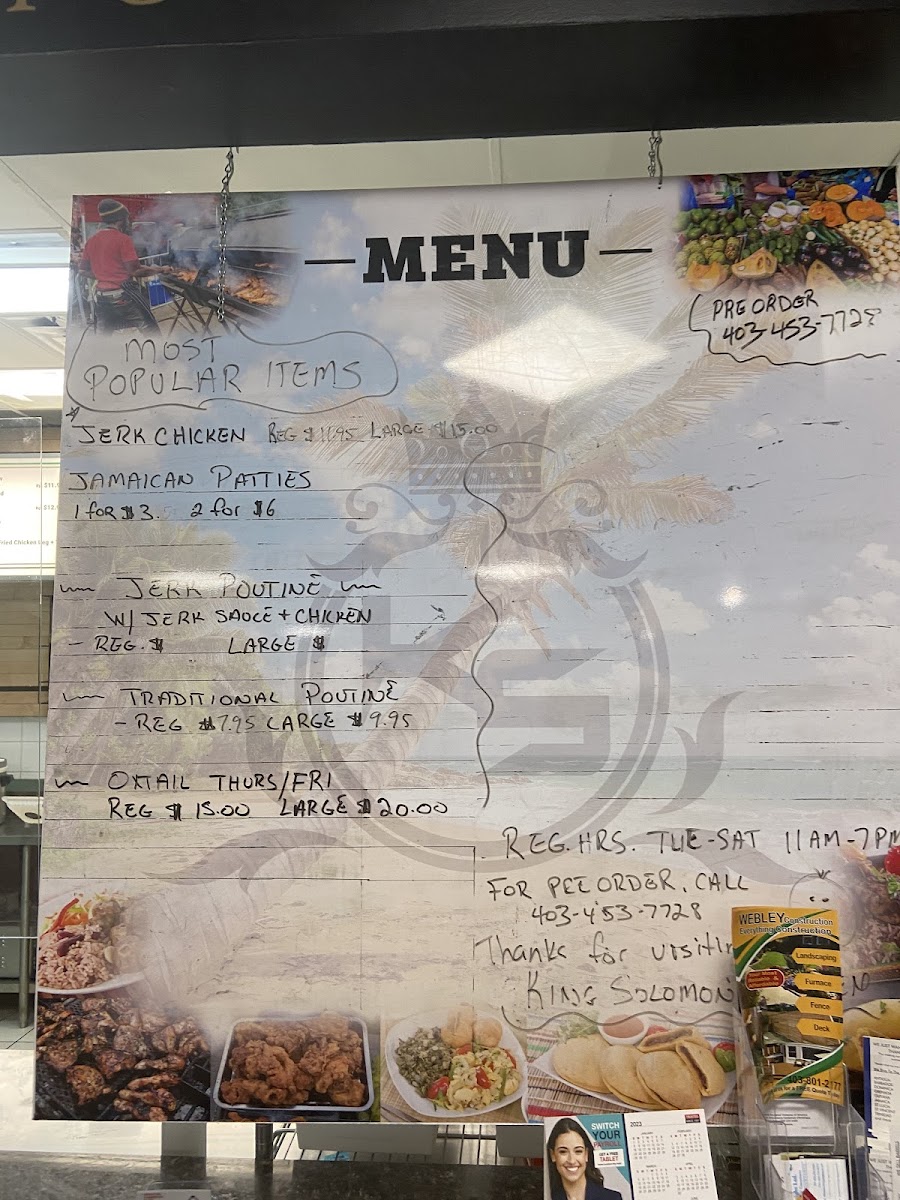 MENU
PRE ORDER
403-453-7728
MOST
POPULAR ITEMS
JERK CHICKEN REG $11.95 LARGE $15.00
JAMAICAN PATTIES
1 for $3. 2 for $6
JERK POUTINE
W/ JERK SAUCE + CHICKEN
- REG. $ LARGE $
TRADITIONAL POUTINE
- REG $7.95 LARGE $9.95
OXTAIL THURS/FRI
REG $15.00 LARGE $20.00
REG. HRS. TUE-SAT 11AM-7PM
FOR PRE ORDER, CALL
403-453-7728
Thanks for visitin
KING SOLOMON
WEBLEY Construction
Everything Construction
Landscaping
Furnace
Fence
Deck
403-801-2177
SWITCH
YOUR
PAYROLL
GET A FREE
TABLET
2023